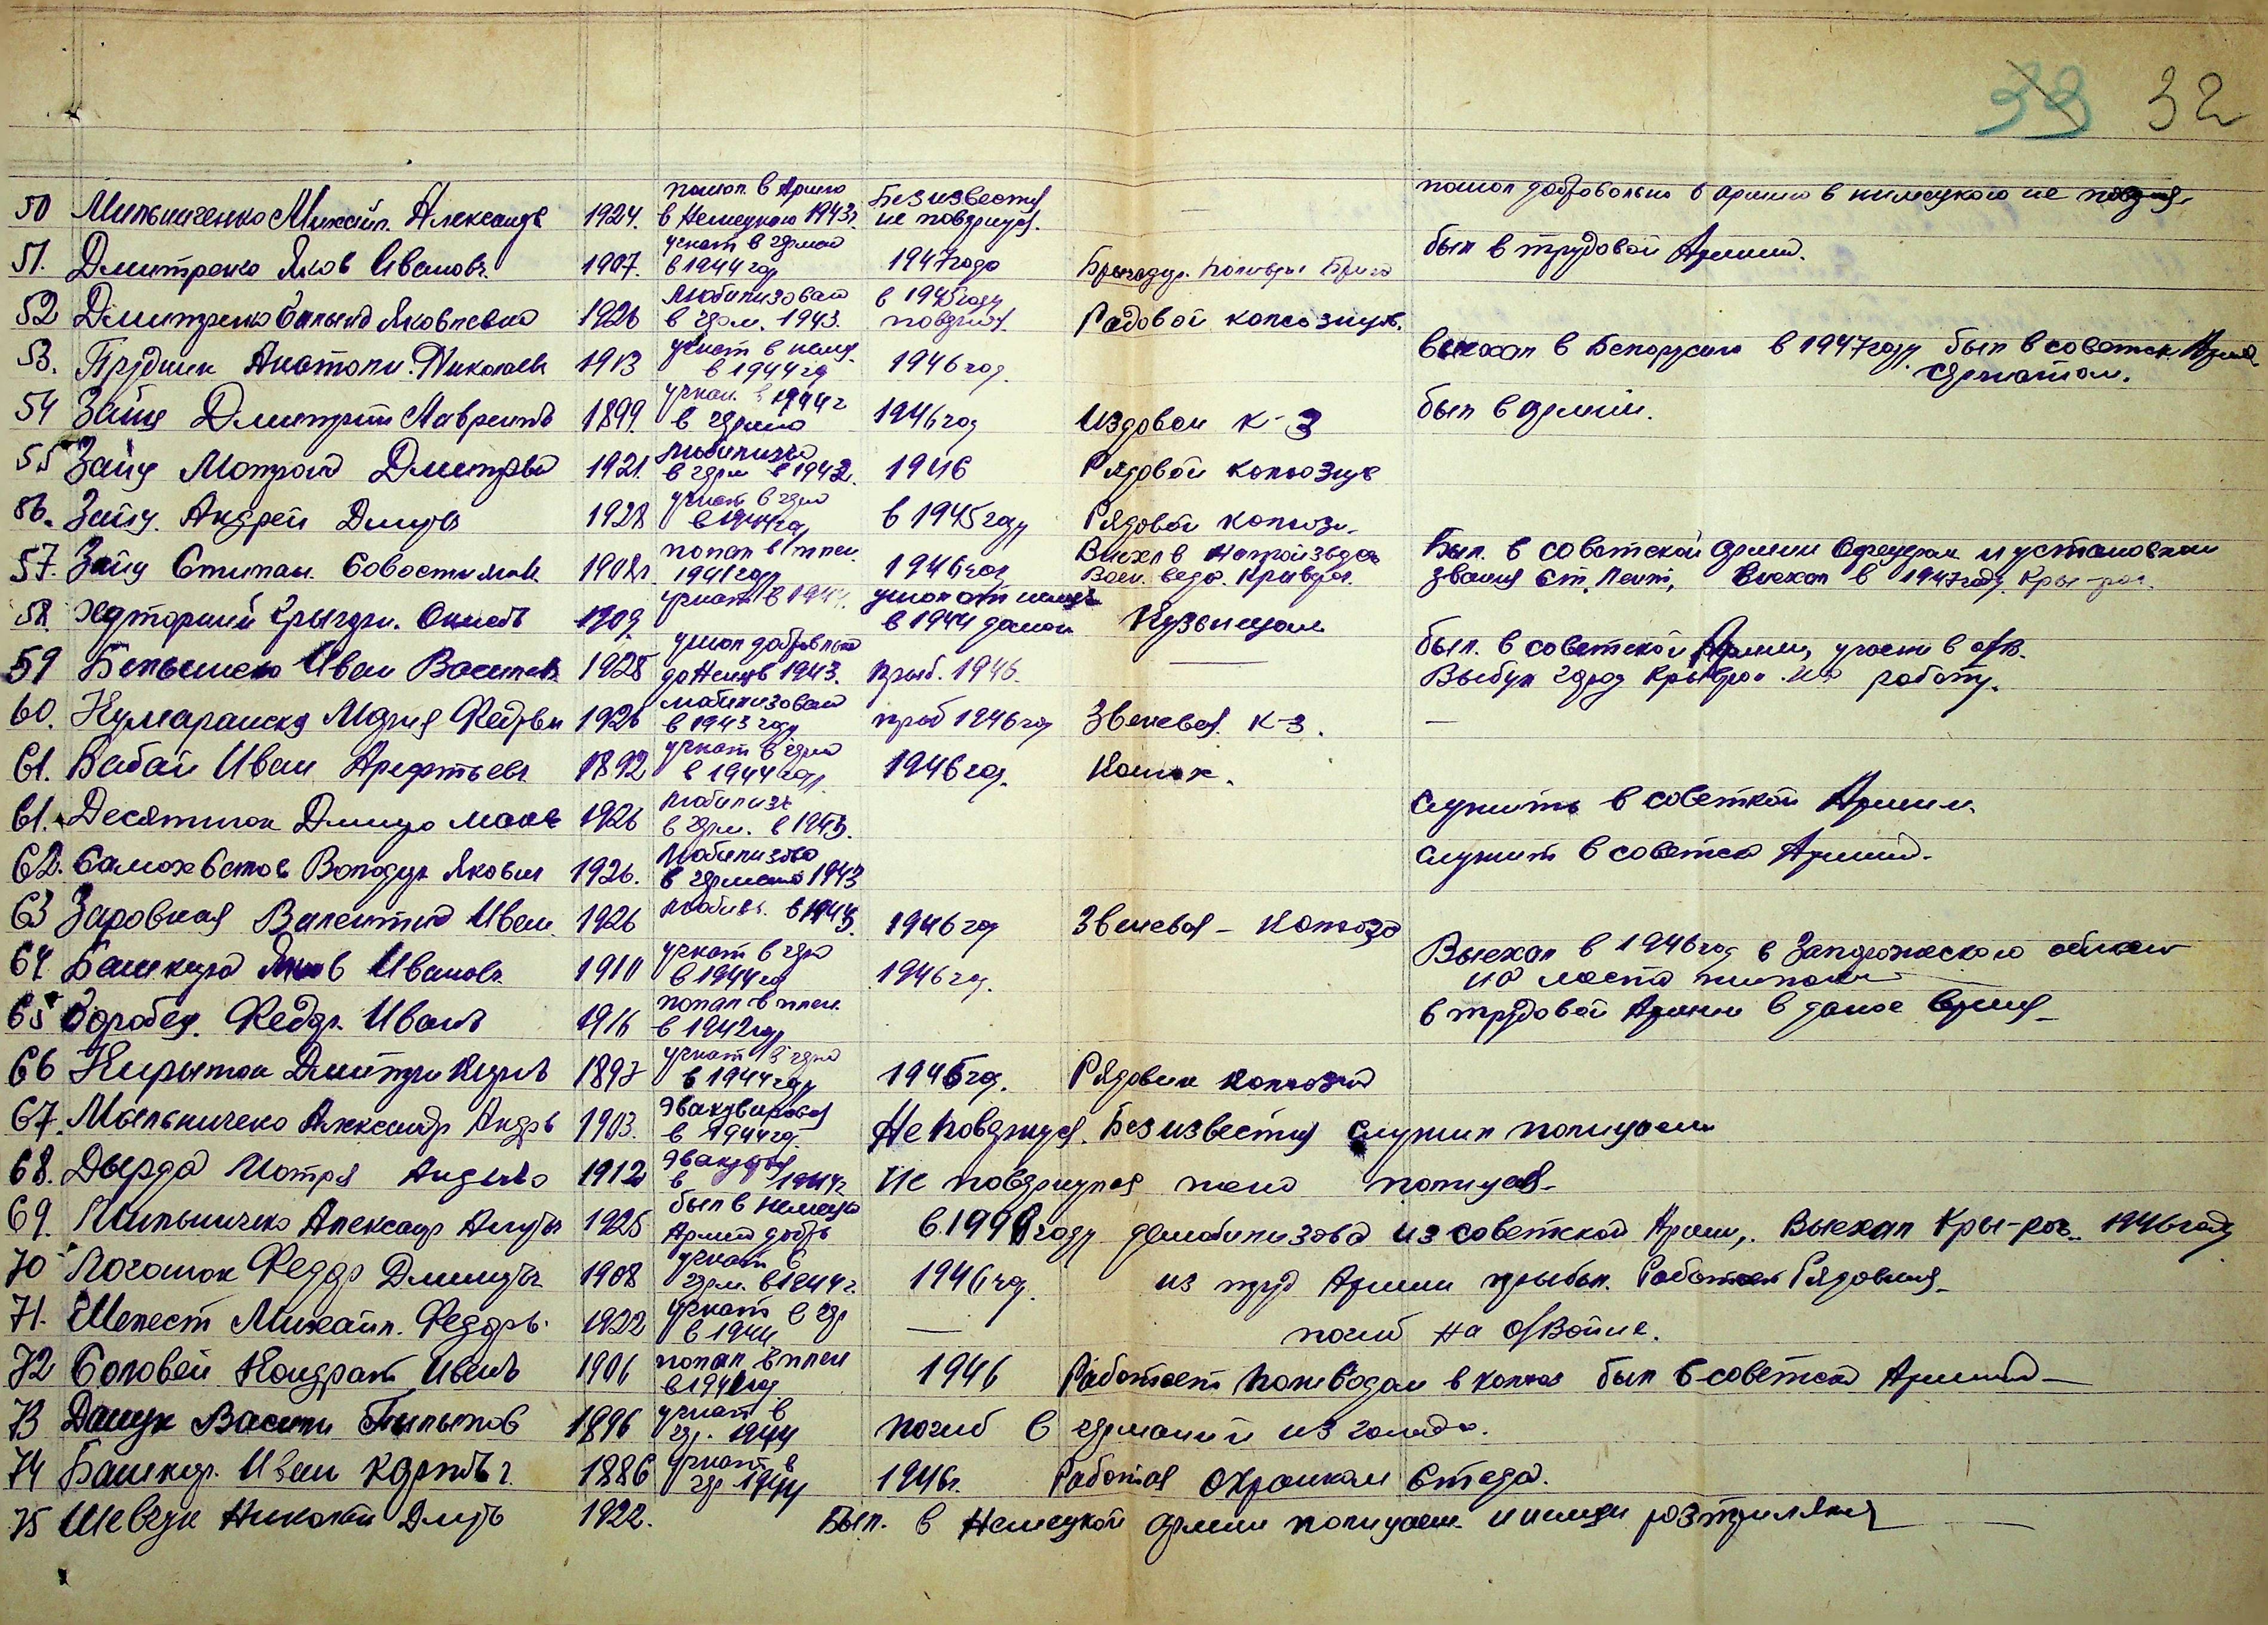 32
50 Мильниченко Михайл. Александв 1924. пошол в Армию в Немецкою 1943г. Без известия не повернулся. — пошол добровольно в армию в нимецкою не
51. Дмитренко Яков Ивановч. 1907. угнат в герман в 1944 год 1947 года был в трудовой Армии.
52 Дмитренко Яковлевна 1926 мобилизован в герм. 1943. в 1945 году Радовой колгозник.
53. Прудник Анатоли. Николаев 1913 угнат в нем. в 1944 го 1946 год. выехал в Белорусию в 1947 году был в советск. Армии сержантом.
54 Заяц Дмитрий Лаврентв 1899. угнан в 1944 г в герман 1946 год Издовои к-з был в армии.
55 Заяц Мотрона Дмитрова 1921. мобилизов в герм в 1942. 1946 Рядовой колхозник
56. Заяц. Андрей Дмитр 1928 угнат в герм в 1944 год в 1945 году Рядовой колхозн.
57. Заяц Стипан. 1908г. попал в плен 1941 году 1946 год Был. в советской армии Офицером и установлен звания Ст. Лейт, Виехал в 1947 году Кры-рог.
58. Хуторний Грыгори. 1909. угнат в 1944. ушол от немцв в 1944 Кузнецом был. в советской Армии, участн в о/в.
59 Иван Василев. 1928 ушол добровльно до Немцв 1943. приб. 1946. — Выбул город Крыврог. на работу.
60. Мария Федрвн 1926 мобилизован в 1943 году приб 1946 год Звеневая. к-з. —
61. Бабай Иван Арефтьевч 1892 угнат в герм в 1944 году 1946 год. Конюх.
61. Десятнюк Дмитро 1926 мобилизв в герм. в 1943. служить в советкой Армии.
62. Самохвстов Володир Якович 1926. Мобилизова в германию 1943 служит в советско Армии.
63 Заровная Валентина Иван. 1926 мобилз. в 1943. 1946 год Звеневая - колхоза
64 Яков Ивановч. 1911 угнат в герм в 1944 го 1946 год. Выехал в 1946 год в Запорожского област на места
65 Воробец. Федор. Иванв 1916 попал в плен. в 1942 году в трудовой Армии в даное время
66 Дмитри 1897 угнат в герм в 1944 году 1946 год. Рядовик колхозна
67. Мыльничено Александр Андрв 1903. эвакуировался в 1944 год. Не повернуся. Без известия служил полицаем
68. Дырда Мотря 1912 эвакуиров в 1944 г не повернулася жена полицая.
69. Мильничко Александр Дмитр 1925 был в немецко Армии добр в 1949 году демобилизова из советской Арми,. Выехал Кры-рог. 1946 году
70 Погонюк Федор Дмитрч 1908 угнат в герм. в 1944 г. 1946 год. из труд Армии прыбыл. Работает Рядовим.
71. Шепест Михайл. Федоров. 1922 угнат в гер в 1944 — погиб на о/Войне.
72 Соловей Кондрат Иванв 1906 попал в плен в 1941 год. 1946 Работает полеводом в колхоз был в советско Армии —
73 Дащук Васили Пилыпов 1896 угнат в гер. 1944 погиб в германии из голода.
74 Башкир. Иван 1886 угнат в гер 1944 1946г. Работая охранком Стеда.
75 Шевчук Николай Дмитр 1922. Был. в Немецкой армии полицаем. и немци розтриляли —